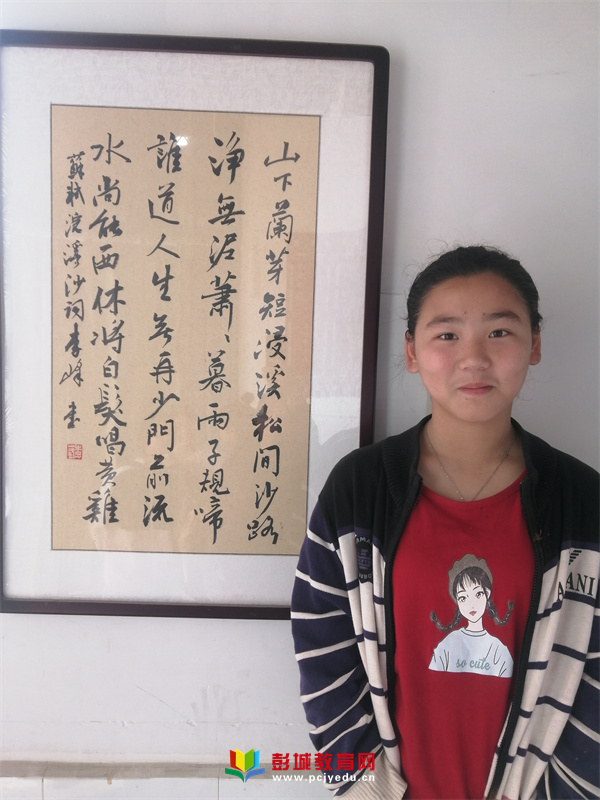 山下蘭芽短浸溪松間沙路
淨無泥蕭、暮雨子規啼
誰道人生无再少門前流
水尚能西休將白髮唱黄雞
蘇軾浣溪沙詞李峰書
so cute
ANI
彭城教育网
www.pcjyedu.cn